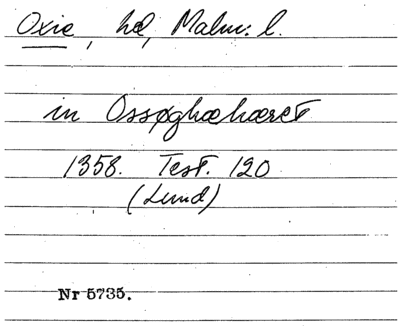 Oxie, hd, Malm: l.
in Ossøghæhæret
1358. Test. 120
(Lund)
Nr 5735.